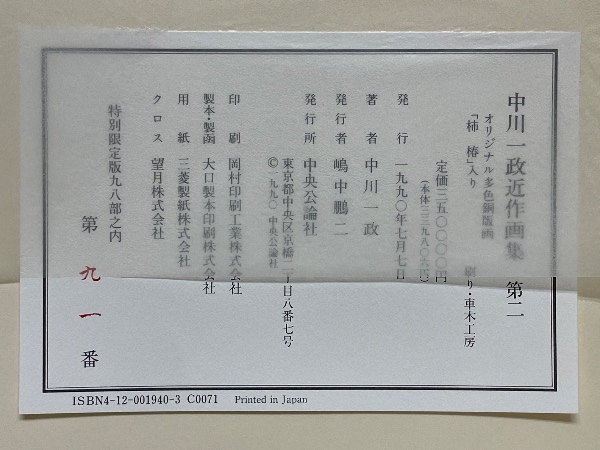 中川一政近作画集 第二
オリジナル多色銅版画
「柿 椿」入り 刷り・車木工房
定価三五〇〇〇〇円
(本体三三九八〇六円)
発行 一九九〇年七月七日
著者 中川一政
発行者 嶋中鵬二
発行所 中央公論社
東京都中央区京橋二丁目八番七号
©一九九〇 中央公論社
印刷 岡村印刷工業株式会社
製本・製函 大口製本印刷株式会社
用紙 三菱製紙株式会社
クロス 望月株式会社
特別限定版九八部之内
第 九一 番
ISBN4-12-001940-3 C0071 Printed in Japan